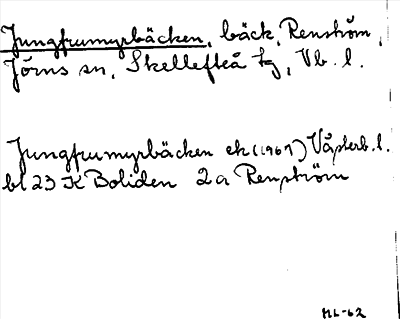 Jungfrumyrbäcken, bäck, Renström,
Jörns sn, Skellefteå kg, Vb. l.
Jungfrumyrbäcken ek (1967) Västerb. l.
bl 23 K Boliden 2a Renström
ML-62